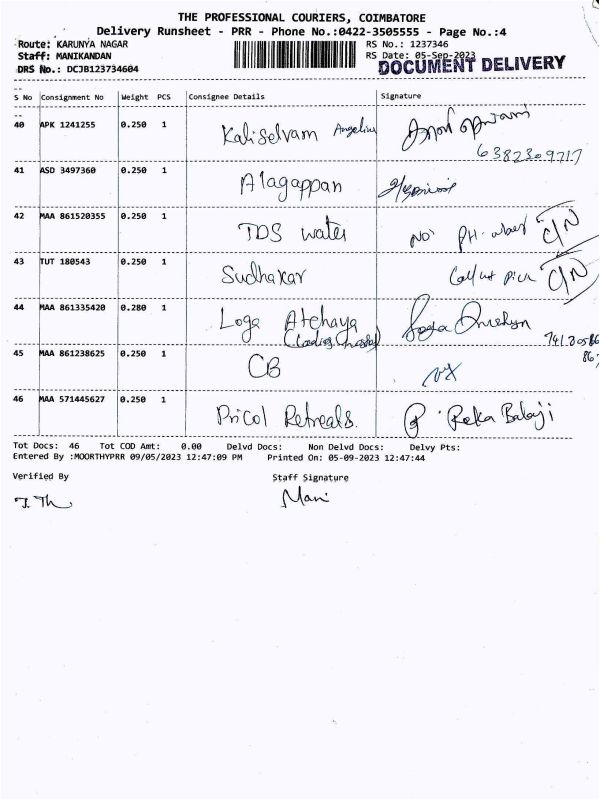 THE PROFESSIONAL COURIERS, COIMBATORE
Delivery Runsheet - PRR - Phone No.:0422-3505555 - Page No.:4
Route: KARUNYA NAGAR RS No.: 1237346
Staff: MANIKANDAN RS Date: 05-Sep-2023
DRS No.: DCJB123734604 DOCUMENT DELIVERY
S No Consignment No Weight PCS Consignee Details Signature
40 APK 1241255 0.250 1 Kaliselvam Angelina
6382309717
41 ASD 3497360 0.250 1 Alagappan
42 MAA 861520355 0.250 1 TDS water No PH. C/N
43 TUT 180543 0.250 1 Sudhakar Call not pick C/N
44 MAA 861335420 0.280 1 Loga Atchaya
45 MAA 861238625 0.250 1 CB
46 MAA 571445627 0.250 1 Pricol Retreats. Reka Balaji
Tot Docs: 46 Tot COD Amt: 0.00 Delvd Docs: Non Delvd Docs: Delvy Pts:
Entered By :MOORTHYPRR 09/05/2023 12:47:09 PM Printed On: 05-09-2023 12:47:44
Verified By Staff Signature
Mani